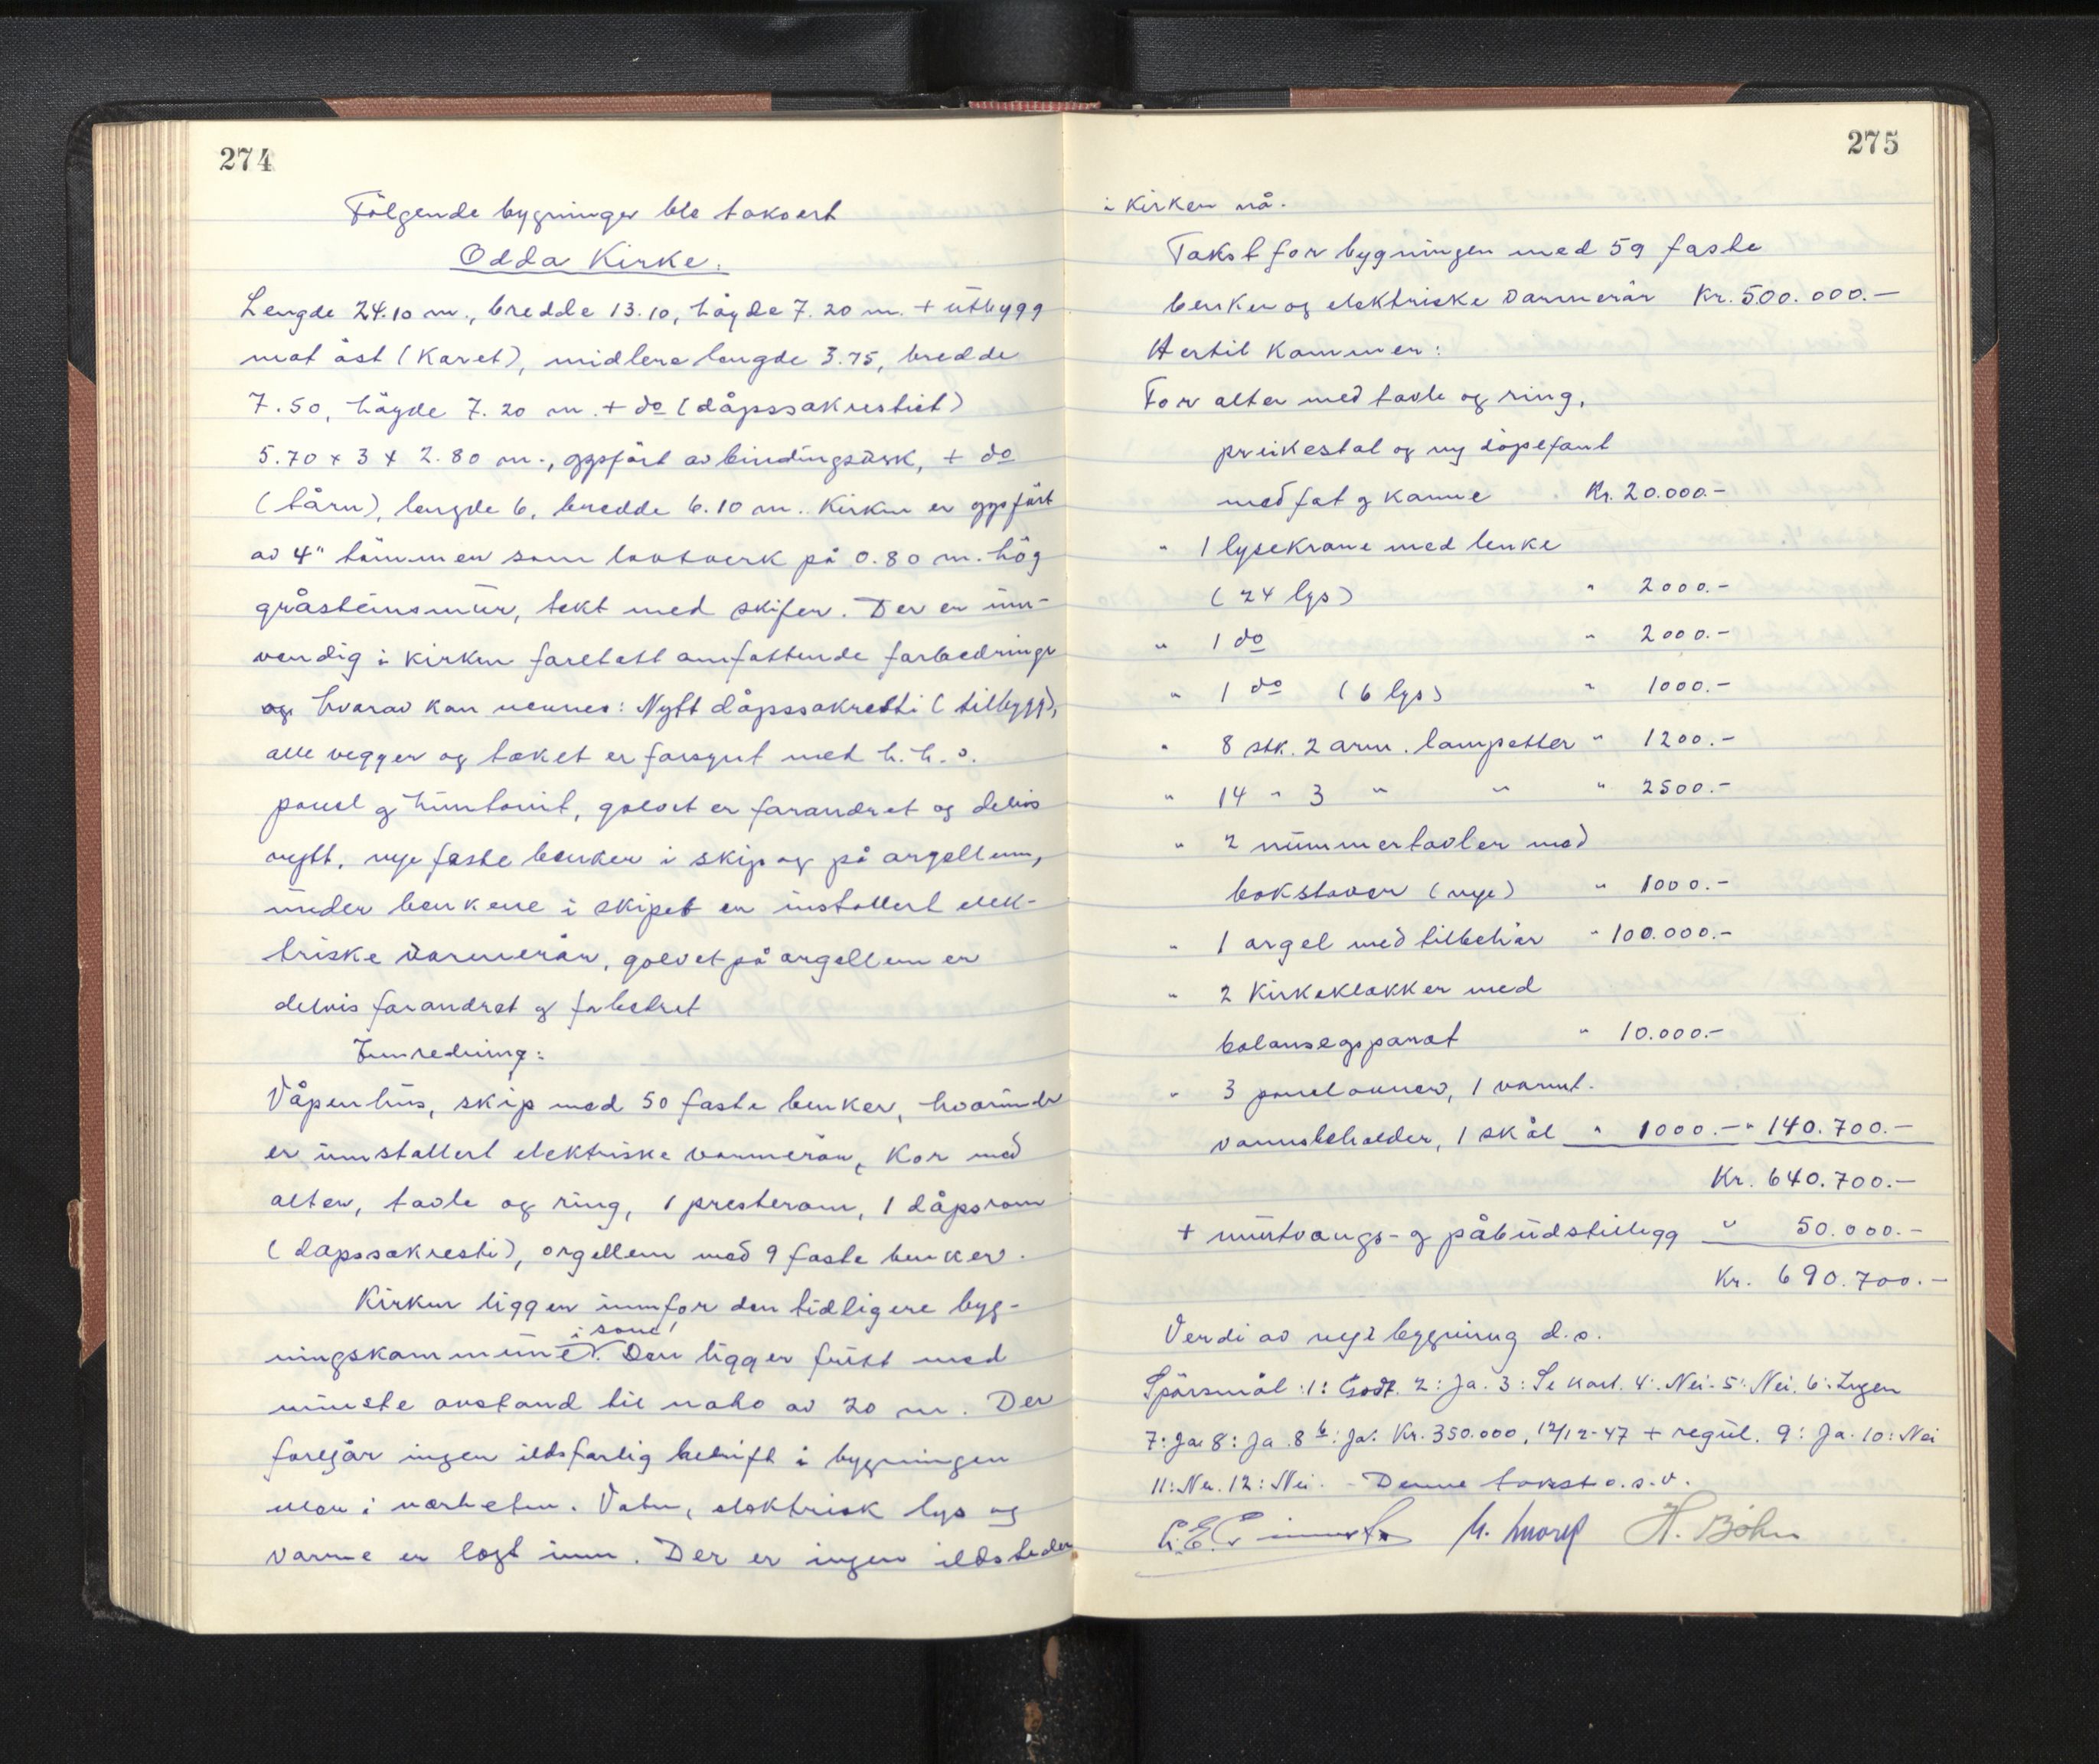 274
Følgende bygninger ble taksert
Odda Kirke.
Lengde 24.10 m., bredde 13.10, høyde 7.20 m. + utbygg
mot øst (Koret), midlere lengde 3.75, bredde
7.50, høyde 7.20 m. + do (dåpssakristiet)
5.70 x 3 x 2.80 m., oppført av bindingsverk, + do
(tårn), lengde 6, bredde 6.10 m. Kirken er oppført
av 4" tømmer som lavtverk på 0.80 m. høg
gråsteinsmur, tekt med skifer. Der er inn-
vendig i kirken foretatt omfattende forbedringer
og hvorav kan nevnes: Nytt dåpssakresti (tilbygg),
alle vegger og taket er forsynt med h.h.v.
panel og huntonit, golvet er forandret og delvis
nytt, nye faste benker i skip og på orgellem,
under benkene i skipet er installert elek-
triske varmerør, golvet på orgellem er
delvis forandret og forbetret
Innredning:
Våpenhus, skip med 50 faste benker, hvorunder
er innstallert elektriske varmerør, Kor med
alter, tavle og ring, 1 presterom, 1 dåpsrom
(dåpssakresti), orgellem med 9 faste benker.
Kirken ligger innfor den tidligere byg-
i sone 1
ningskommune. Den ligger fritt med
minste avstand til nabo av 20 m. Der
foregår ingen ildsfarlig bedrift i bygningen
eller i nærheten. Vatn, elektrisk lys og
varme er lagt inn. Der er ingen ildsteder
275
i Kirken nå.
Takst for bygningen med 59 faste
benker og elektriske varmerør Kr. 500.000.-
Hertil kommer:
For alter med tavle og ring,
preikestol og ny døpefont
med fat og kanne Kr. 20.000.-
" 1 lysekrone med lenke
(24 lys) " 2000.-
" 1 do " 2000.-
" 1 do (6 lys) " 1000.-
" 8 stk. 2 arm. lampetter " 1200.-
" 14 " 3 " " " 2500.-
" 2 nummertavler med
bokstaver (nye) " 1000.-
" 1 orgel med tilbehør " 100.000.-
" 2 Kirkeklokker med
balanseapparat " 10.000.-
" 3 panelovner, 1 varmt.
vannsbeholder, 1 skål " 1000.- " 140.700.-
Kr. 640.700.-
+ murtvangs- og påbudstillegg " 50.000.-
Kr. 690.700.-
Verdi av nye bygning d.o.
Spørsmål: 1: Godt. 2: Ja. 3: Se kart. 4: Nei. 5: Nei. 6: Ingen
7: Ja. 8: Ja 8 b: Ja. Kr. 350.000, 12/12-47 + regul. 9: Ja. 10: Nei
11: Nei. 12: Nei. - Denne takst o.s.v.
H. Bøhn